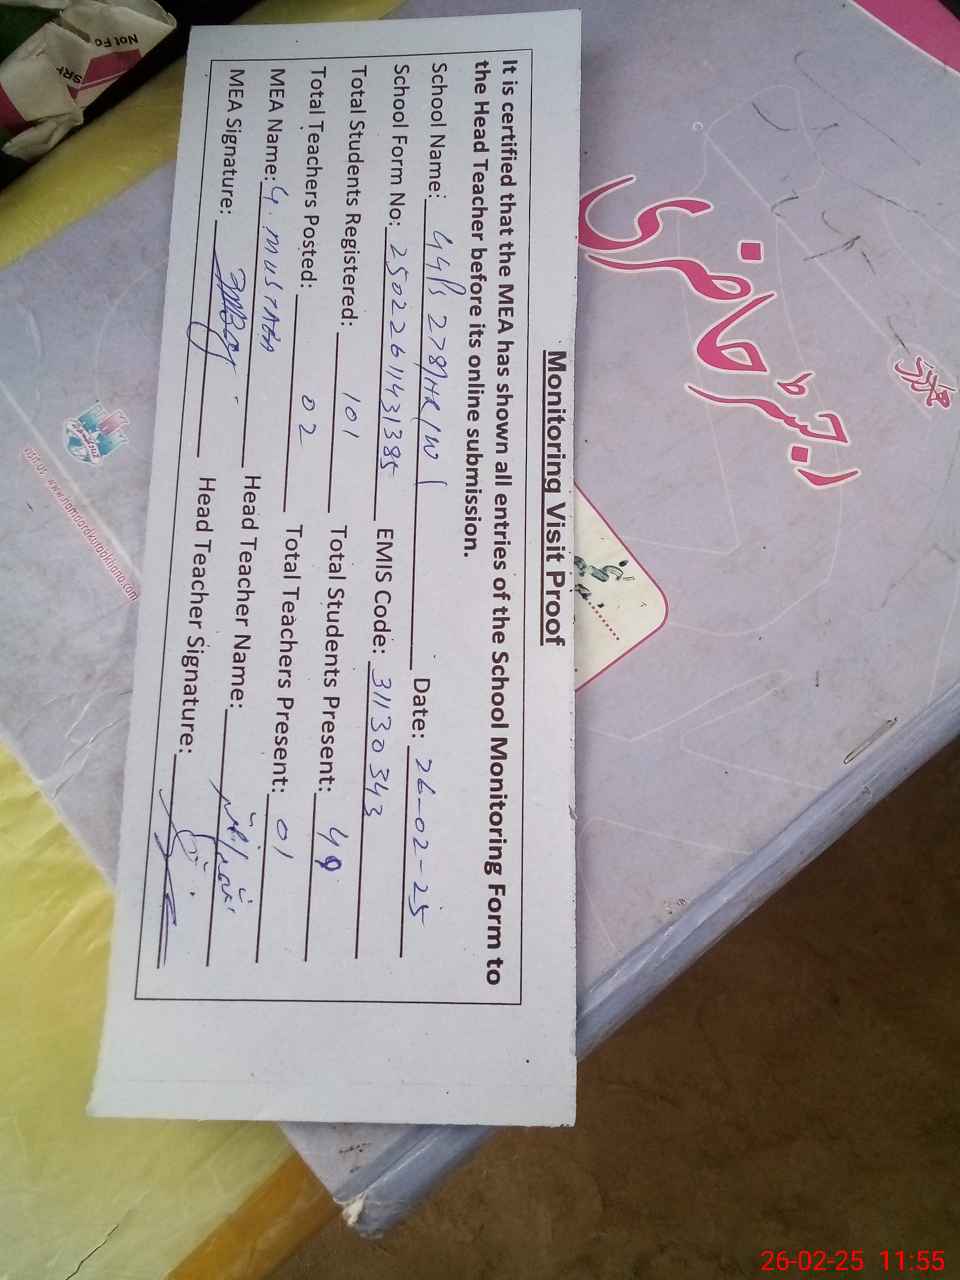 Monitoring Visit Proof
It is certified that the MEA has shown all entries of the School Monitoring Form to
the Head Teacher before its online submission.
School Name: 278/HR/W Date: 26-02-25
School Form No: 25022611431385 EMIS Code: 31130343
Total Students Registered: 101 Total Students Present: 49
Total Teachers Posted: 02 Total Teachers Present: 01
MEA Name: G. MUSTAFA Head Teacher Name:
MEA Signature: Head Teacher Signature:
رجسٹر حاضری
ہمدرد
visit us: www.hamdardkutabkhana.com
Not Fo
26-02-25 11:55